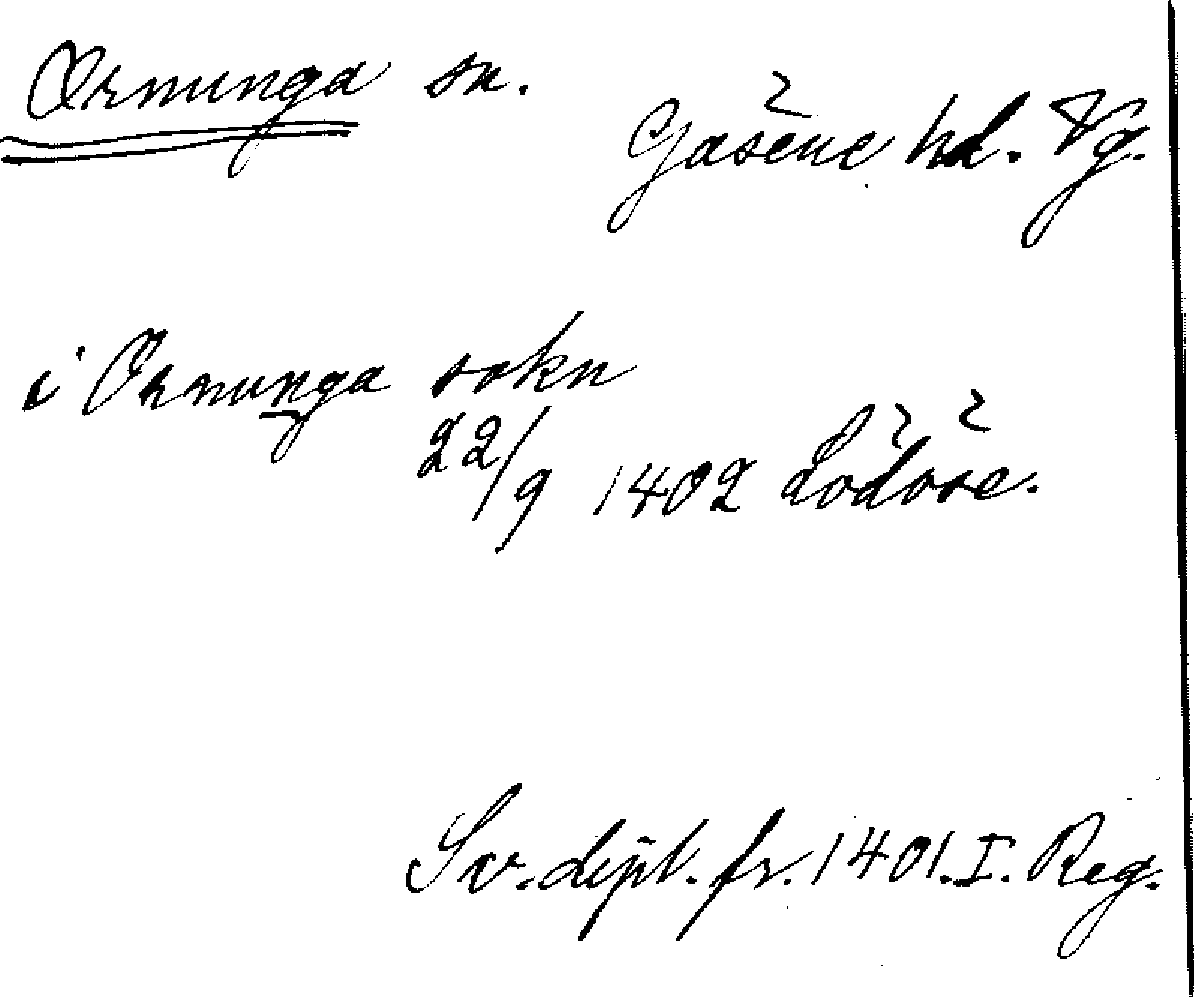 Ornunga sn.
Gäsene hd. Vg.
i Ornunga sokn
22/9 1402 Lödöse.
Sv. dipl. fr. 1401. I. Reg.